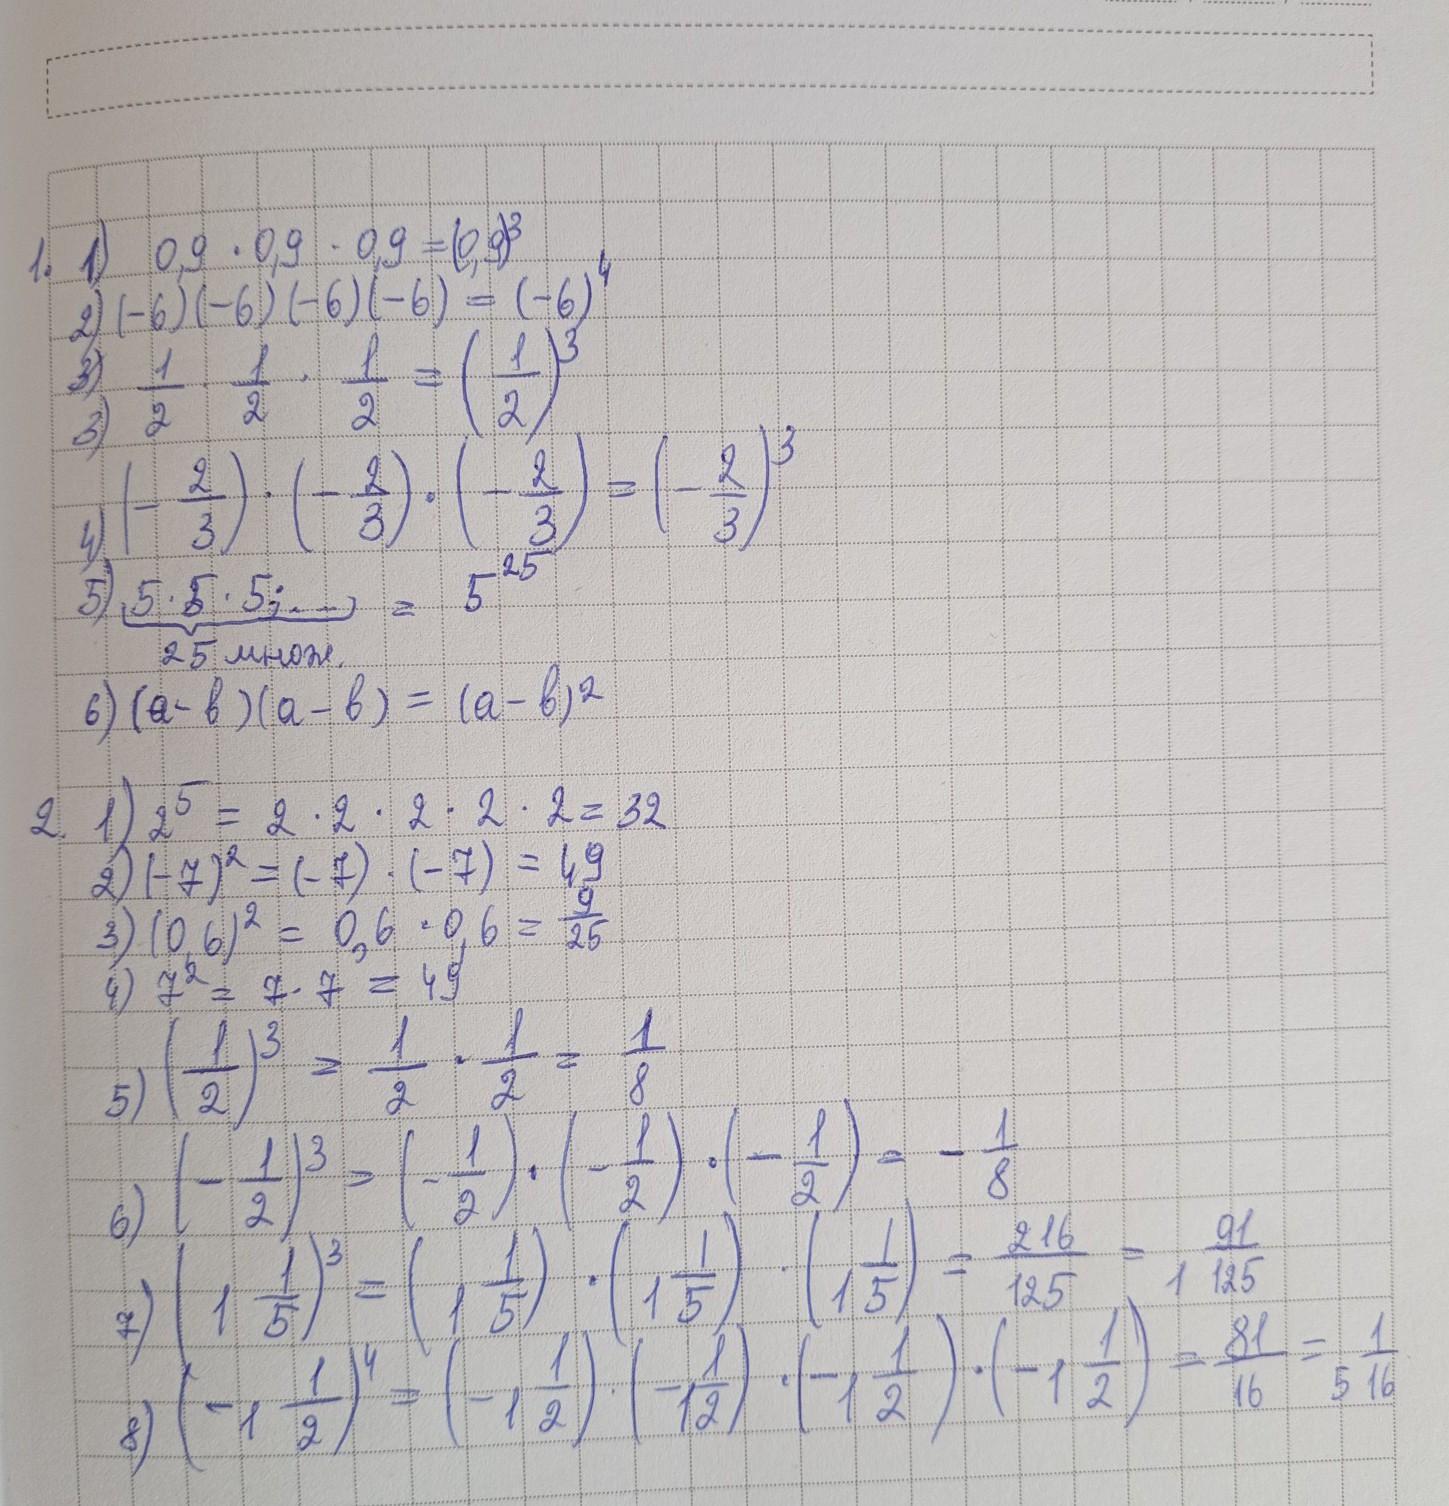 1. 1) 0,9 · 0,9 · 0,9 = (0,9)³
2) (-6)(-6)(-6)(-6) = (-6)⁴
3) 1/2 · 1/2 · 1/2 = (1/2)³
3)
4) (- 2/3) · (- 2/3) · (- 2/3) = (- 2/3)³
5) 5 · 5 · 5; ... = 5²⁵
25 множ.
6) (a - b)(a - b) = (a - b)²
2. 1) 2⁵ = 2 · 2 · 2 · 2 · 2 = 32
2) (-7)² = (-7) · (-7) = 49
3) (0,6)² = 0,6 · 0,6 = 9/25
4) 7² = 7 · 7 = 49
5) (1/2)³ = 1/2 · 1/2 = 1/8
6) (- 1/2)³ = (- 1/2) · (- 1/2) · (- 1/2) = - 1/8
7) (1 1/5)³ = (1 1/5) · (1 1/5) · (1 1/5) = 216/125 = 1 91/125
8) (-1 1/2)⁴ = (-1 1/2) · (-1 1/2) · (-1 1/2) · (-1 1/2) = 81/16 = 5 1/16